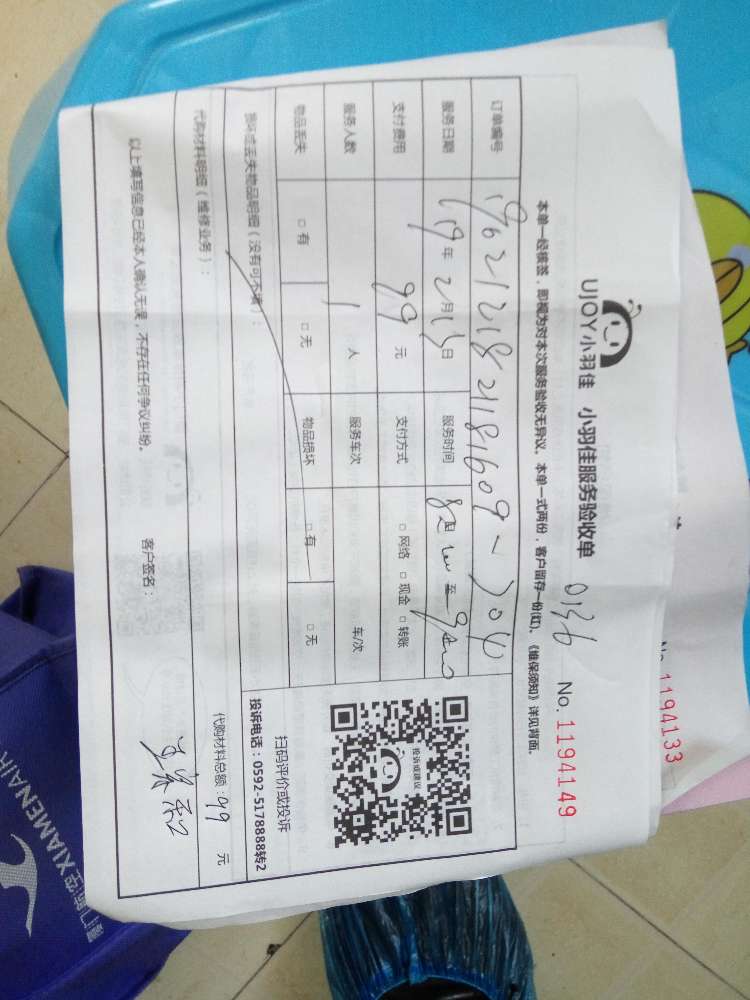 UJOY小羽佳 小羽佳服务验收单 0136
No. 1194149
本单一经核签，即视为对本次服务验收无异议。本单一式两份，客户留存一份(红)。《维保须知》详见背面。
订单编号
服务日期 19年2月13日 服务时间
支付费用 99元 支付方式 □网络 □现金 □转账
服务人数 1人 服务车次 车/次
物品丢失 □有 □无 物品损坏 □有 □无
损坏或丢失物品明细（没有可不填）：
投诉或建议
扫码评价或投诉
投诉电话：0592-5178888转2
代购材料明细（维修业务）： 代购材料总额：99 元
以上填写信息已经本人确认无误，不存在任何争议纠纷。 客户签名：
No. 1194133
XIAMENAIR